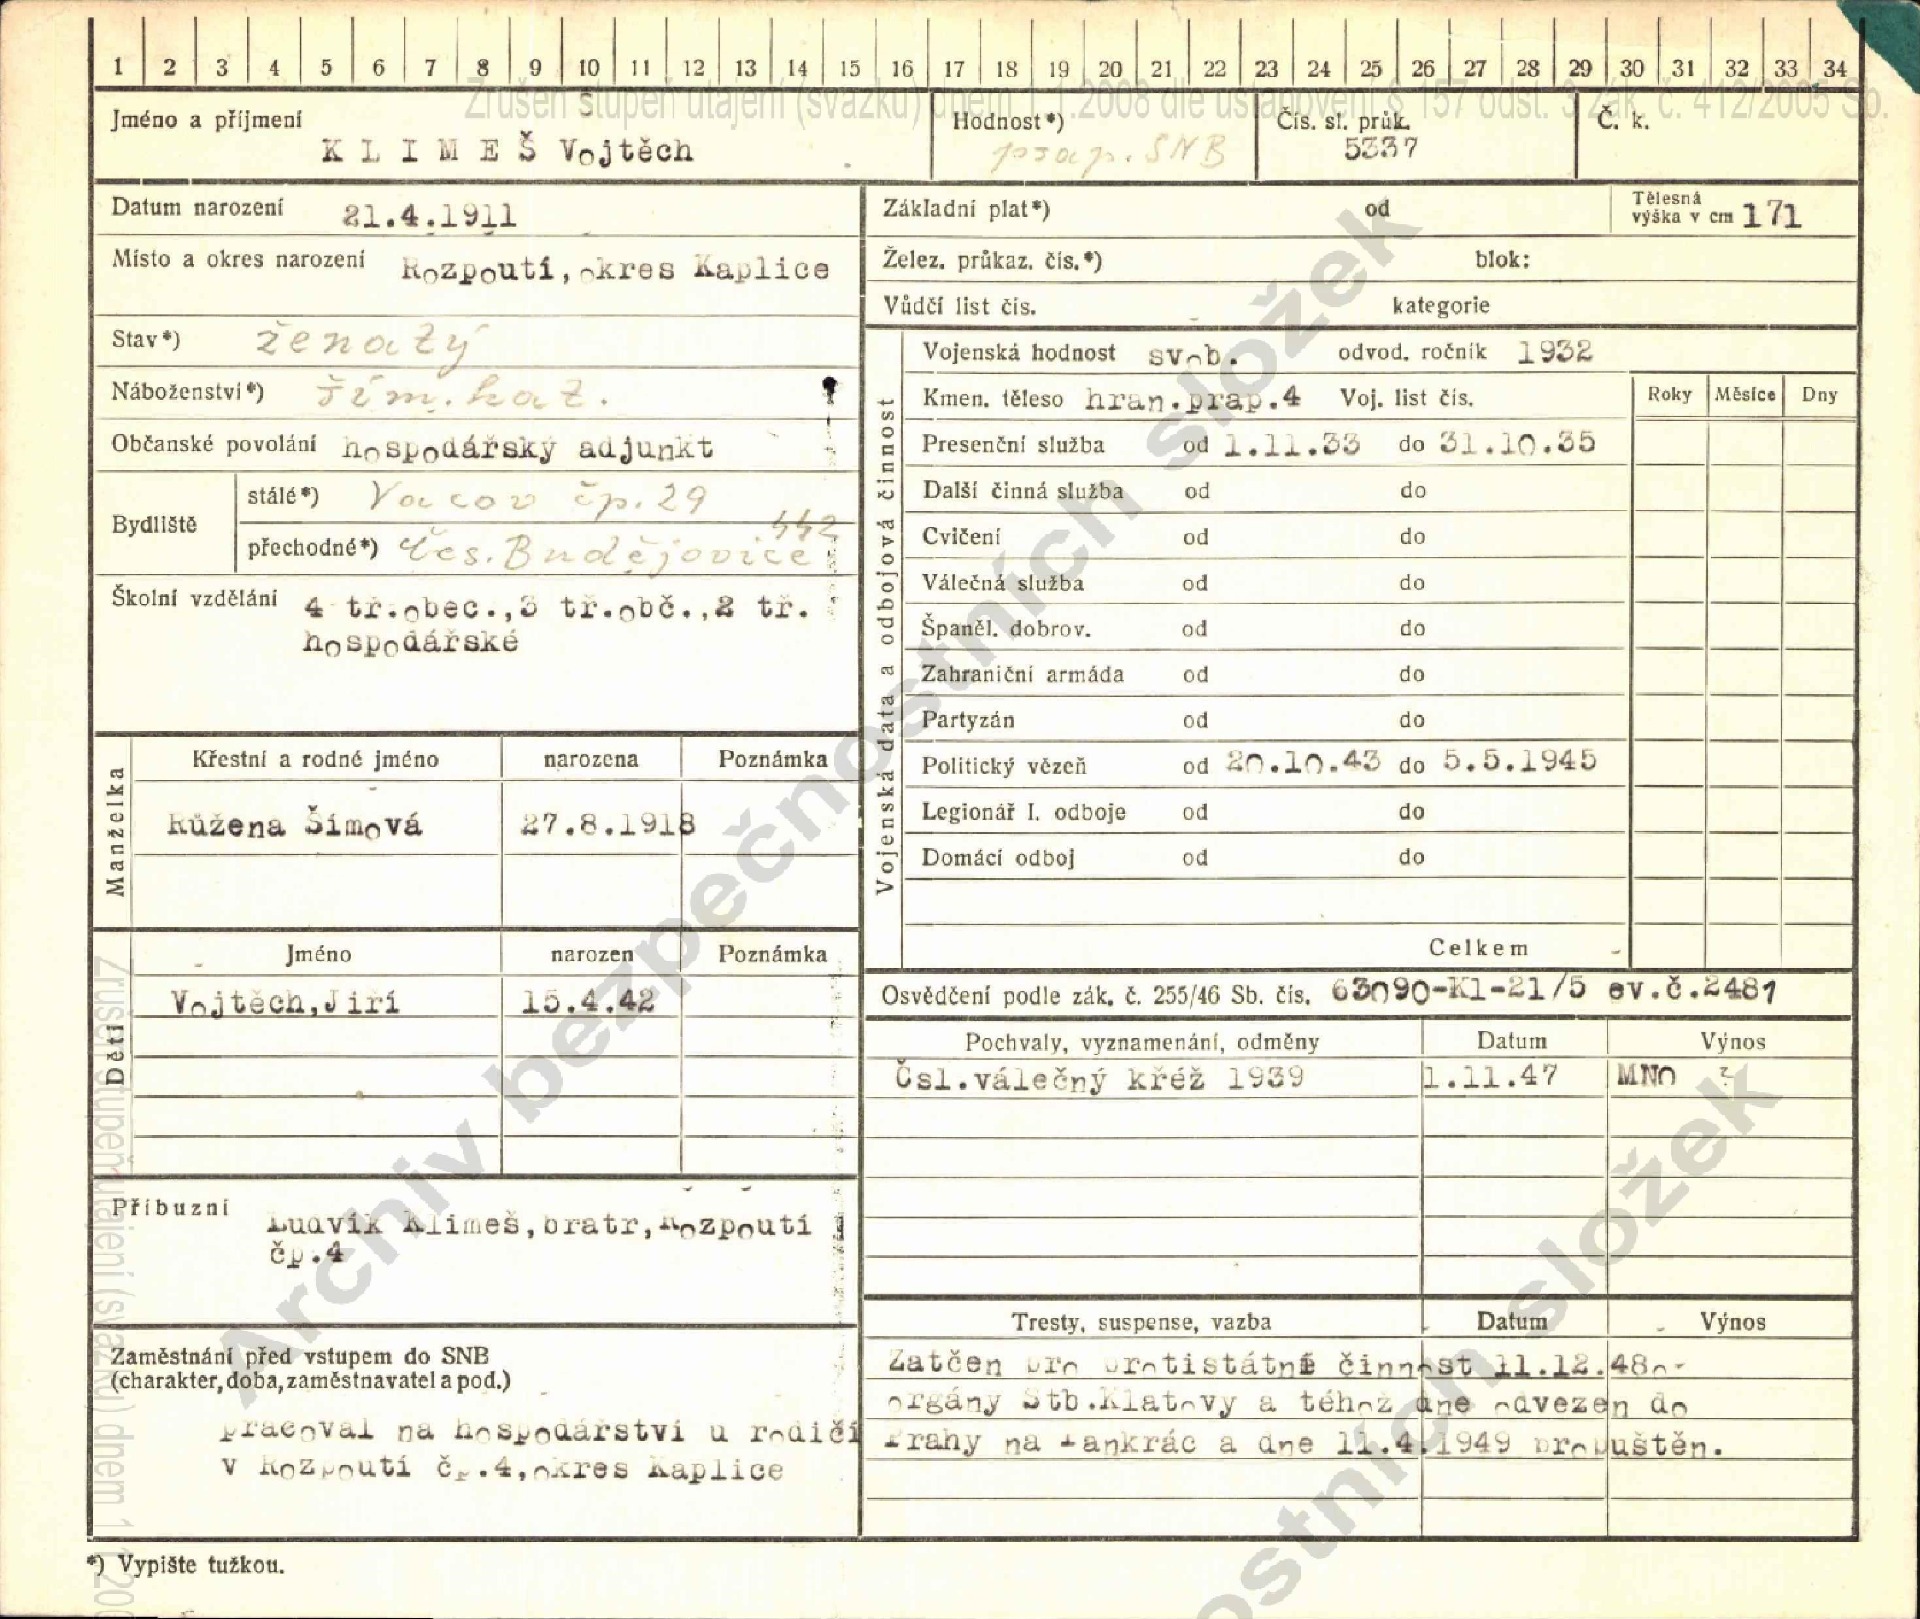 1 2 3 4 5 6 7 8 9 10 11 12 13 14 15 16 17 18 19 20 21 22 23 24 25 26 27 28 29 30 31 32 33 34
Zrušen stupeň utajení (svazku) dnem 1.1.2008 dle ustanovení § 157 odst. 3 zák. č. 412/2005 Sb.
Jméno a příjmení
K L I M E Š Vojtěch
Hodnost*)
SNB
Čís. sl. průk.
5337
Č. k.
Datum narození 21.4.1911
Místo a okres narození Rozpoutí, okres Kaplice
Stav*) ženatý
Náboženství*) řím. kat.
Občanské povolání hospodářský adjunkt
Bydliště
stálé*) Vacov čp. 29
přechodné*) Čes. Budějovice 442
Školní vzdělání 4 tř.obec.,3 tř.obč.,2 tř.
hospodářské
Manželka
Křestní a rodné jméno narozena Poznámka
Růžena Šímová 27.8.1918
Děti
Jméno narozen Poznámka
Vojtěch,Jiří 15.4.42
Příbuzní
Ludvík Klimeš,bratr,Rozpoutí
čp.4
Zaměstnání před vstupem do SNB
(charakter, doba, zaměstnavatel a pod.)
pracoval na hospodářství u rodičí
v Rozpoutí čp.4,okres Kaplice
*) Vypište tužkou.
Základní plat*) od
Tělesná
výška v cm 171
Želez. průkaz. čís.*) blok:
Vůdčí list čís. kategorie
Vojenská data a odbojová činnost
Vojenská hodnost svob. odvod. ročník 1932
Kmen. těleso hran.prap.4 Voj. list čís. Roky Měsíce Dny
Presenční služba od 1.11.33 do 31.10.35
Další činná služba od do
Cvičení od do
Válečná služba od do
Španěl. dobrov. od do
Zahraniční armáda od do
Partyzán od do
Politický vězeň od 20.10.43 do 5.5.1945
Legionář I. odboje od do
Domácí odboj od do
Celkem
Osvědčení podle zák. č. 255/46 Sb. čís. 63090-Kl-21/5 ev.č.2481
Pochvaly, vyznamenání, odměny Datum Výnos
Čsl.válečný kříž 1939 1.11.47 MNO ?
Tresty, suspense, vazba Datum Výnos
Zatčen pro protistátní činnost 11.12.48
orgány Stb.Klatovy a téhož dne odvezen do
Prahy na Pankrác a dne 11.4.1949 propuštěn.
Archiv bezpečnostních složek
ostních složek
Zrušen stupeň utajení (svazku) dnem 1